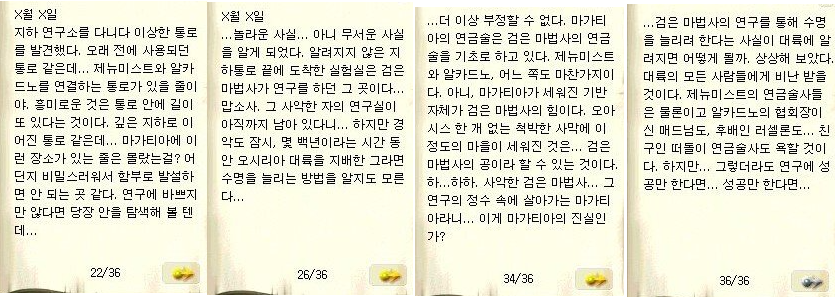 X월 X일
지하 연구소를 다니다 이상한 통로
를 발견했다. 오래 전에 사용되던
통로 같은데... 제뉴미스트와 알카
드노를 연결하는 통로가 있을 줄이
야. 흥미로운 것은 통로 안에 길이
또 있다는 것이다. 깊은 지하로 이
어진 통로 같은데... 마가티아에 이
런 장소가 있는 줄은 몰랐는걸? 어
딘지 비밀스러워서 함부로 발설하
면 안 되는 곳 같다. 연구에 바쁘지
만 않다면 당장 안을 탐색해 볼 텐
데...
22/36
X월 X일
...놀라운 사실... 아니 무서운 사실
을 알게 되었다. 알려지지 않은 지
하통로 끝에 도착한 실험실은 검은
마법사가 연구를 하던 그 곳이다...
맙소사. 그 사악한 자의 연구실이
아직까지 남아 있다니... 하지만 경
악도 잠시, 몇 백년이라는 시간 동
안 오시리아 대륙을 지배한 그라면
수명을 늘리는 방법을 알지도 모른
다...
26/36
...더 이상 부정할 수 없다. 마가티
아의 연금술은 검은 마법사의 연금
술을 기초로 하고 있다. 제뉴미스트
와 알카드노, 어느 쪽도 마찬가지이
다. 아니, 마가티아가 세워진 기반
자체가 검은 마법사의 힘이다. 오아
시스 한 개 없는 척박한 사막에 이
정도의 마을이 세워진 것은... 검은
마법사의 공이라 할 수 있는 것이다.
하...하하. 사악한 검은 마법사... 그
연구의 정수 속에 살아가는 마가티
아라니... 이게 마가티아의 진실인
가?
34/36
...검은 마법사의 연구를 통해 수명
을 늘리려 한다는 사실이 대륙에 알
려지면 어떻게 될까. 상상해 보았다.
대륙의 모든 사람들에게 비난 받을
것이다. 제뉴미스트의 연금술사들
은 물론이고 알카드노의 협회장이
신 매드님도, 후배인 러셀론도... 친
구인 떠돌이 연금술사도 욕할 것이
다. 하지만... 그렇더라도 연구에 성
공만 한다면... 성공만 한다면...
36/36